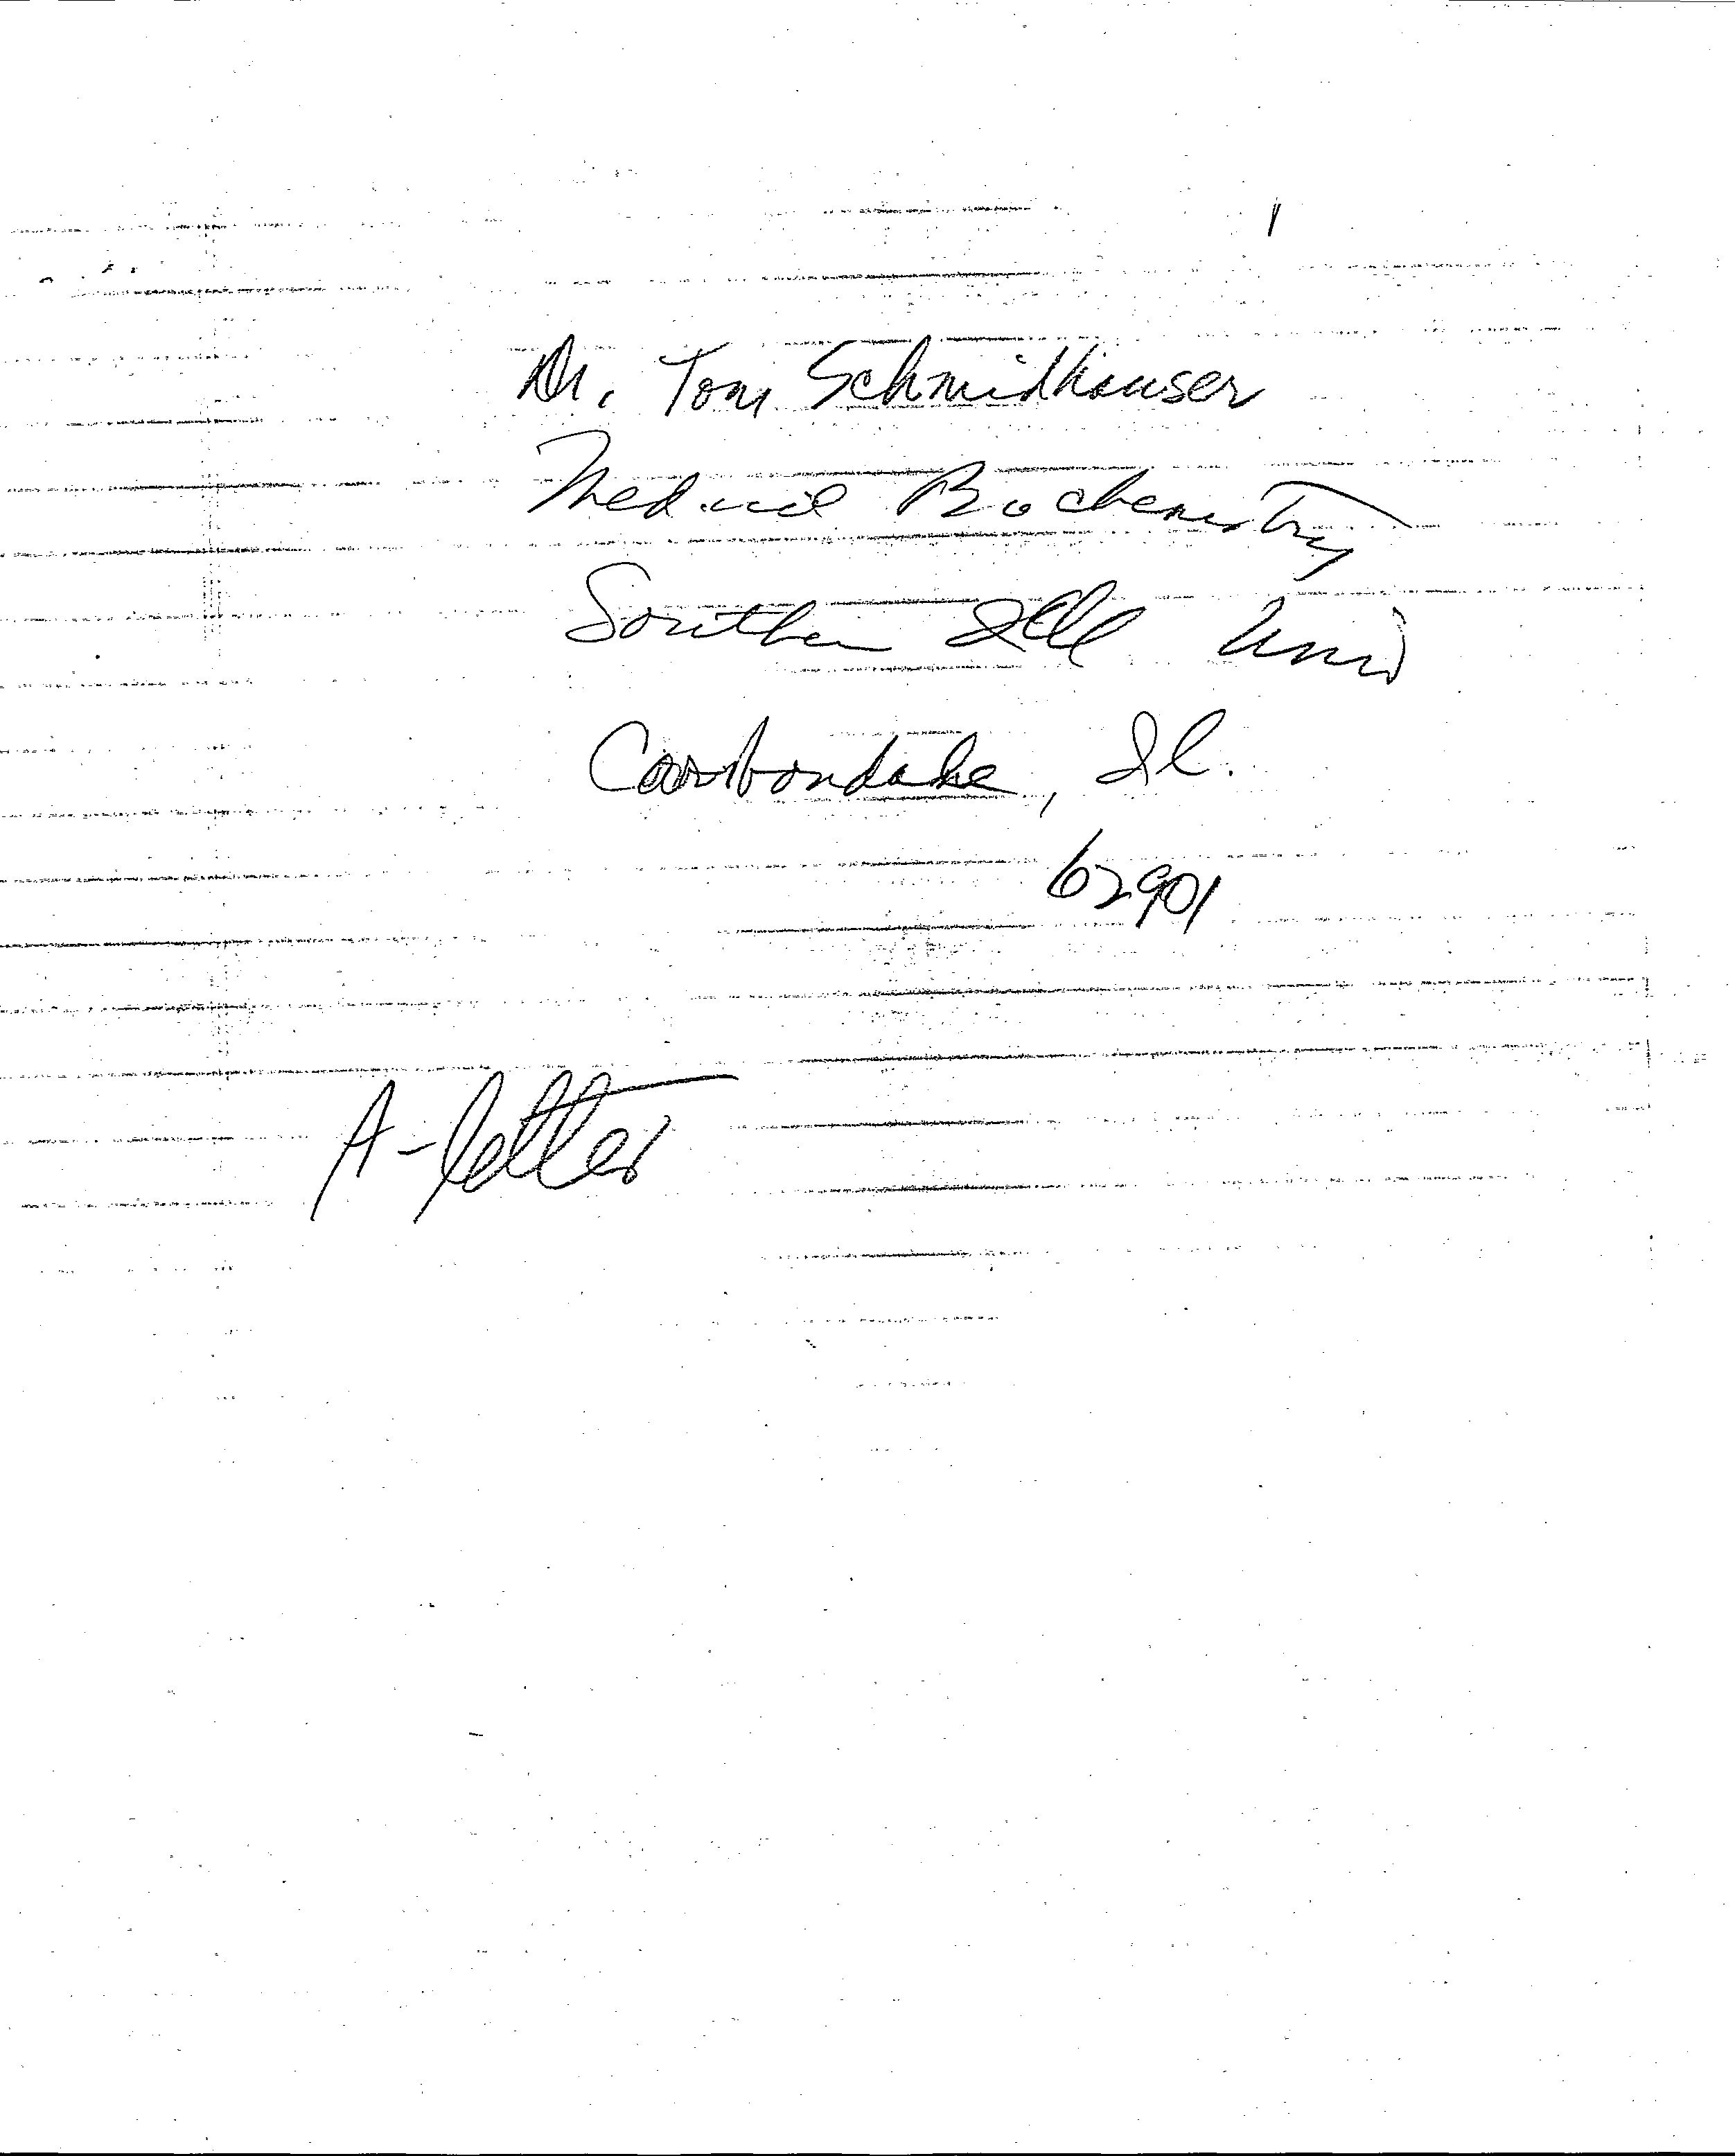 Dr. Tom Schmidhauser
Medical Biochemistry
Southern Ill Univ
Carbondale, Il.
62901
A-letter